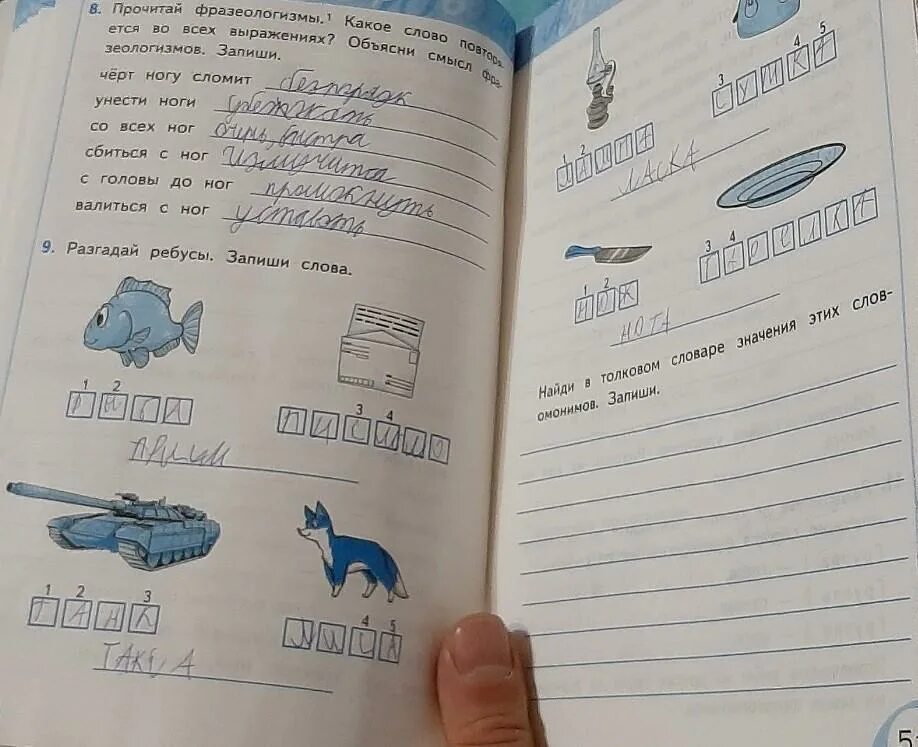 8. Прочитай фразеологизмы.¹ Какое слово повторя-
ется во всех выражениях? Объясни смысл фра-
зеологизмов. Запиши.
чёрт ногу сломит безпорядк
унести ноги убежжать
со всех ног очинь быстра
сбиться с ног Измучится
с головы до ног промокнуть
валиться с ног уставать
9. Разгадай ребусы. Запиши слова.
1 2
РЫБА
3 4
ПИСЬМО
1 2 3
ТАНК
4 5
ЛИСА
ТАКСА
4 5
3
СУМКА
1 2
ЛАМПА
ЛАСКА
3 4
ТАРЕЛКА
1 2
НОЖ
НОТА
Найди в толковом словаре значения этих слов-
омонимов. Запиши.